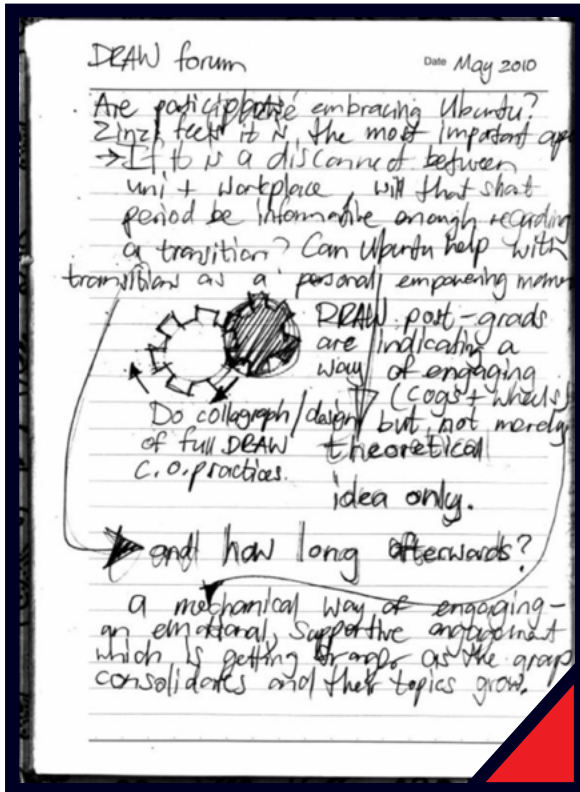 DRAW forum
Date May 2010
Are embracing Ubuntu?
Zinzi feels it is the most important
→ If it is a disconnect between
uni + workplace, will that short
period be informative enough regarding
a transition? Can Ubuntu help with
transitions as a personal empowering
DRAW post-grads
are indicating a
way of engaging
(cogs + wheels)
but not merely
theoretical
idea only.
Do collagraph/design
of full DRAW
C.O.practices.
and how long afterwards?
a mechanical way of engaging -
an emotional, supportive engagement
which is getting stronger as the group
consolidates and their topics grow.